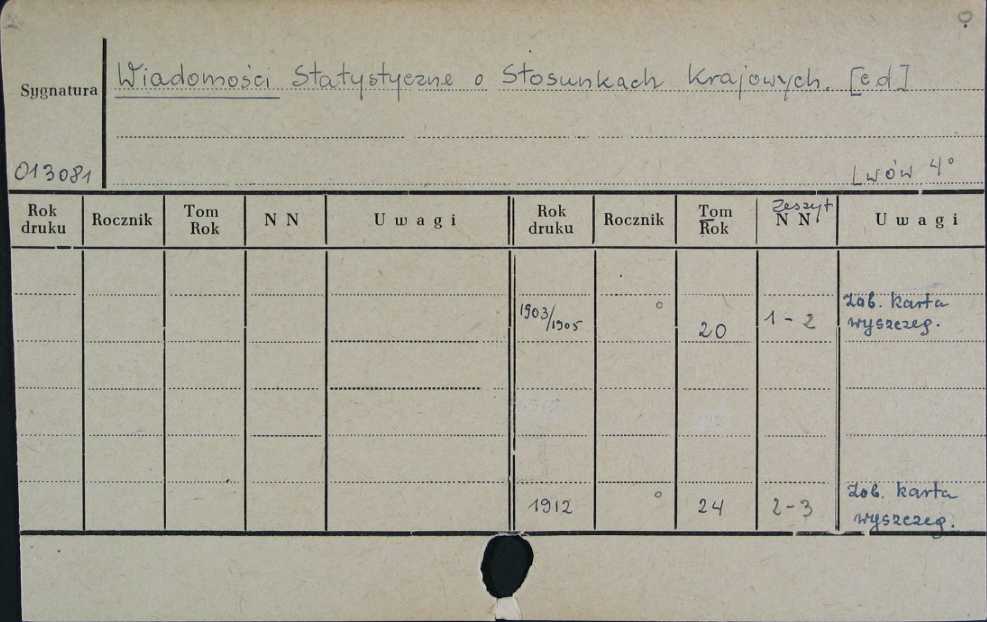 Wiadomości Statystyczne o Stosunkach Krajowych. [cd]
Sygnatura
013081
Lwów 4°
Rok druku Rocznik Tom Rok N N Uwagi Rok druku Rocznik Tom Rok Zeszyt N N Uwagi
1903/1905 ° 20 1-2 Zob. karta wyszczeg.
1912 ° 24 2-3 Zob. karta wyszczeg.